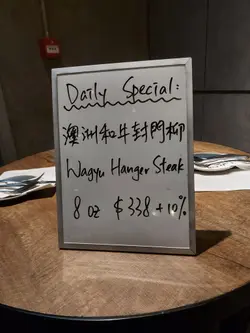 Daily Special:
澳洲和牛封門柳
Wagyu Hanger Steak
8 oz $338 + 10%